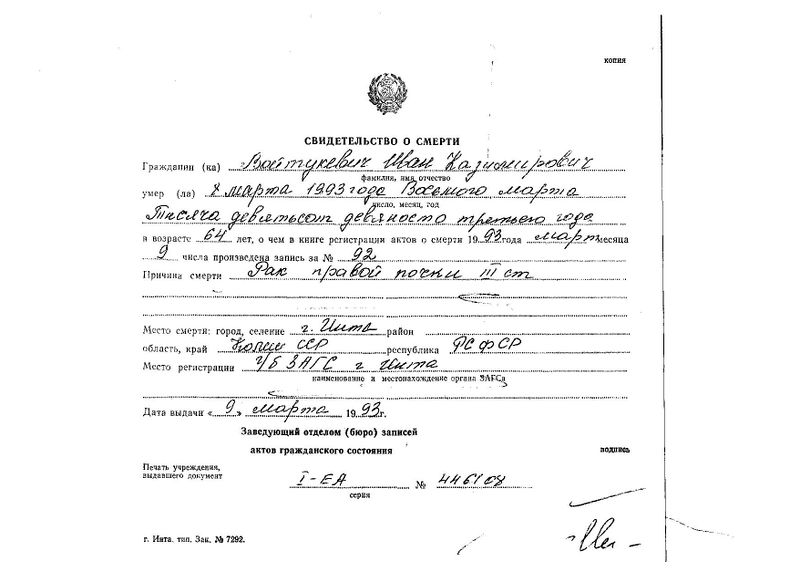 копия
СВИДЕТЕЛЬСТВО О СМЕРТИ
Гражданин (ка) Войтукевич Иван Казимирович
фамилия, имя, отчество
умер (ла) 8 марта 1993 года Восьмого марта
число, месяц, год
Тысяча девятьсот девяносто третьего года
в возрасте 64 лет, о чем в книге регистрации актов о смерти 1993 года март месяца
9 числа произведена запись за № 92
Причина смерти Рак правой почки III ст
Место смерти: город, селение г. Инта район
область, край Коми ССР республика РСФСР
Место регистрации г/б ЗАГС г Инта
наименование и местонахождение органа ЗАГСа
Дата выдачи «9» марта 1993 г.
Заведующий отделом (бюро) записей
актов гражданского состояния подпись
Печать учреждения,
выдавшего документ
I-ЕА № 446108
серия
г. Инта. тип. Зак. № 7292.